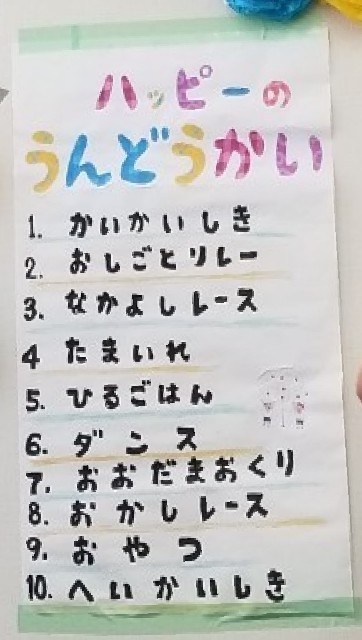 ハッピーの
うんどうかい
1. かいかいしき
2. おしごとリレー
3. なかよしレース
4 たまいれ
5. ひるごはん
6. ダンス
7. おおだまおくり
8. おかしレース
9. おやつ
10. へいかいしき